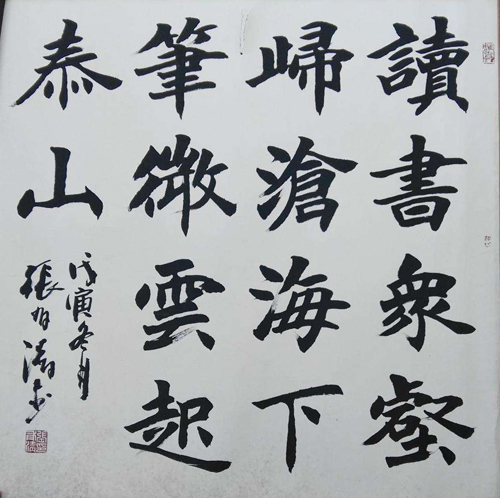 讀書衆壑
歸滄海下
筆微雲起
泰山
戊寅冬月
張